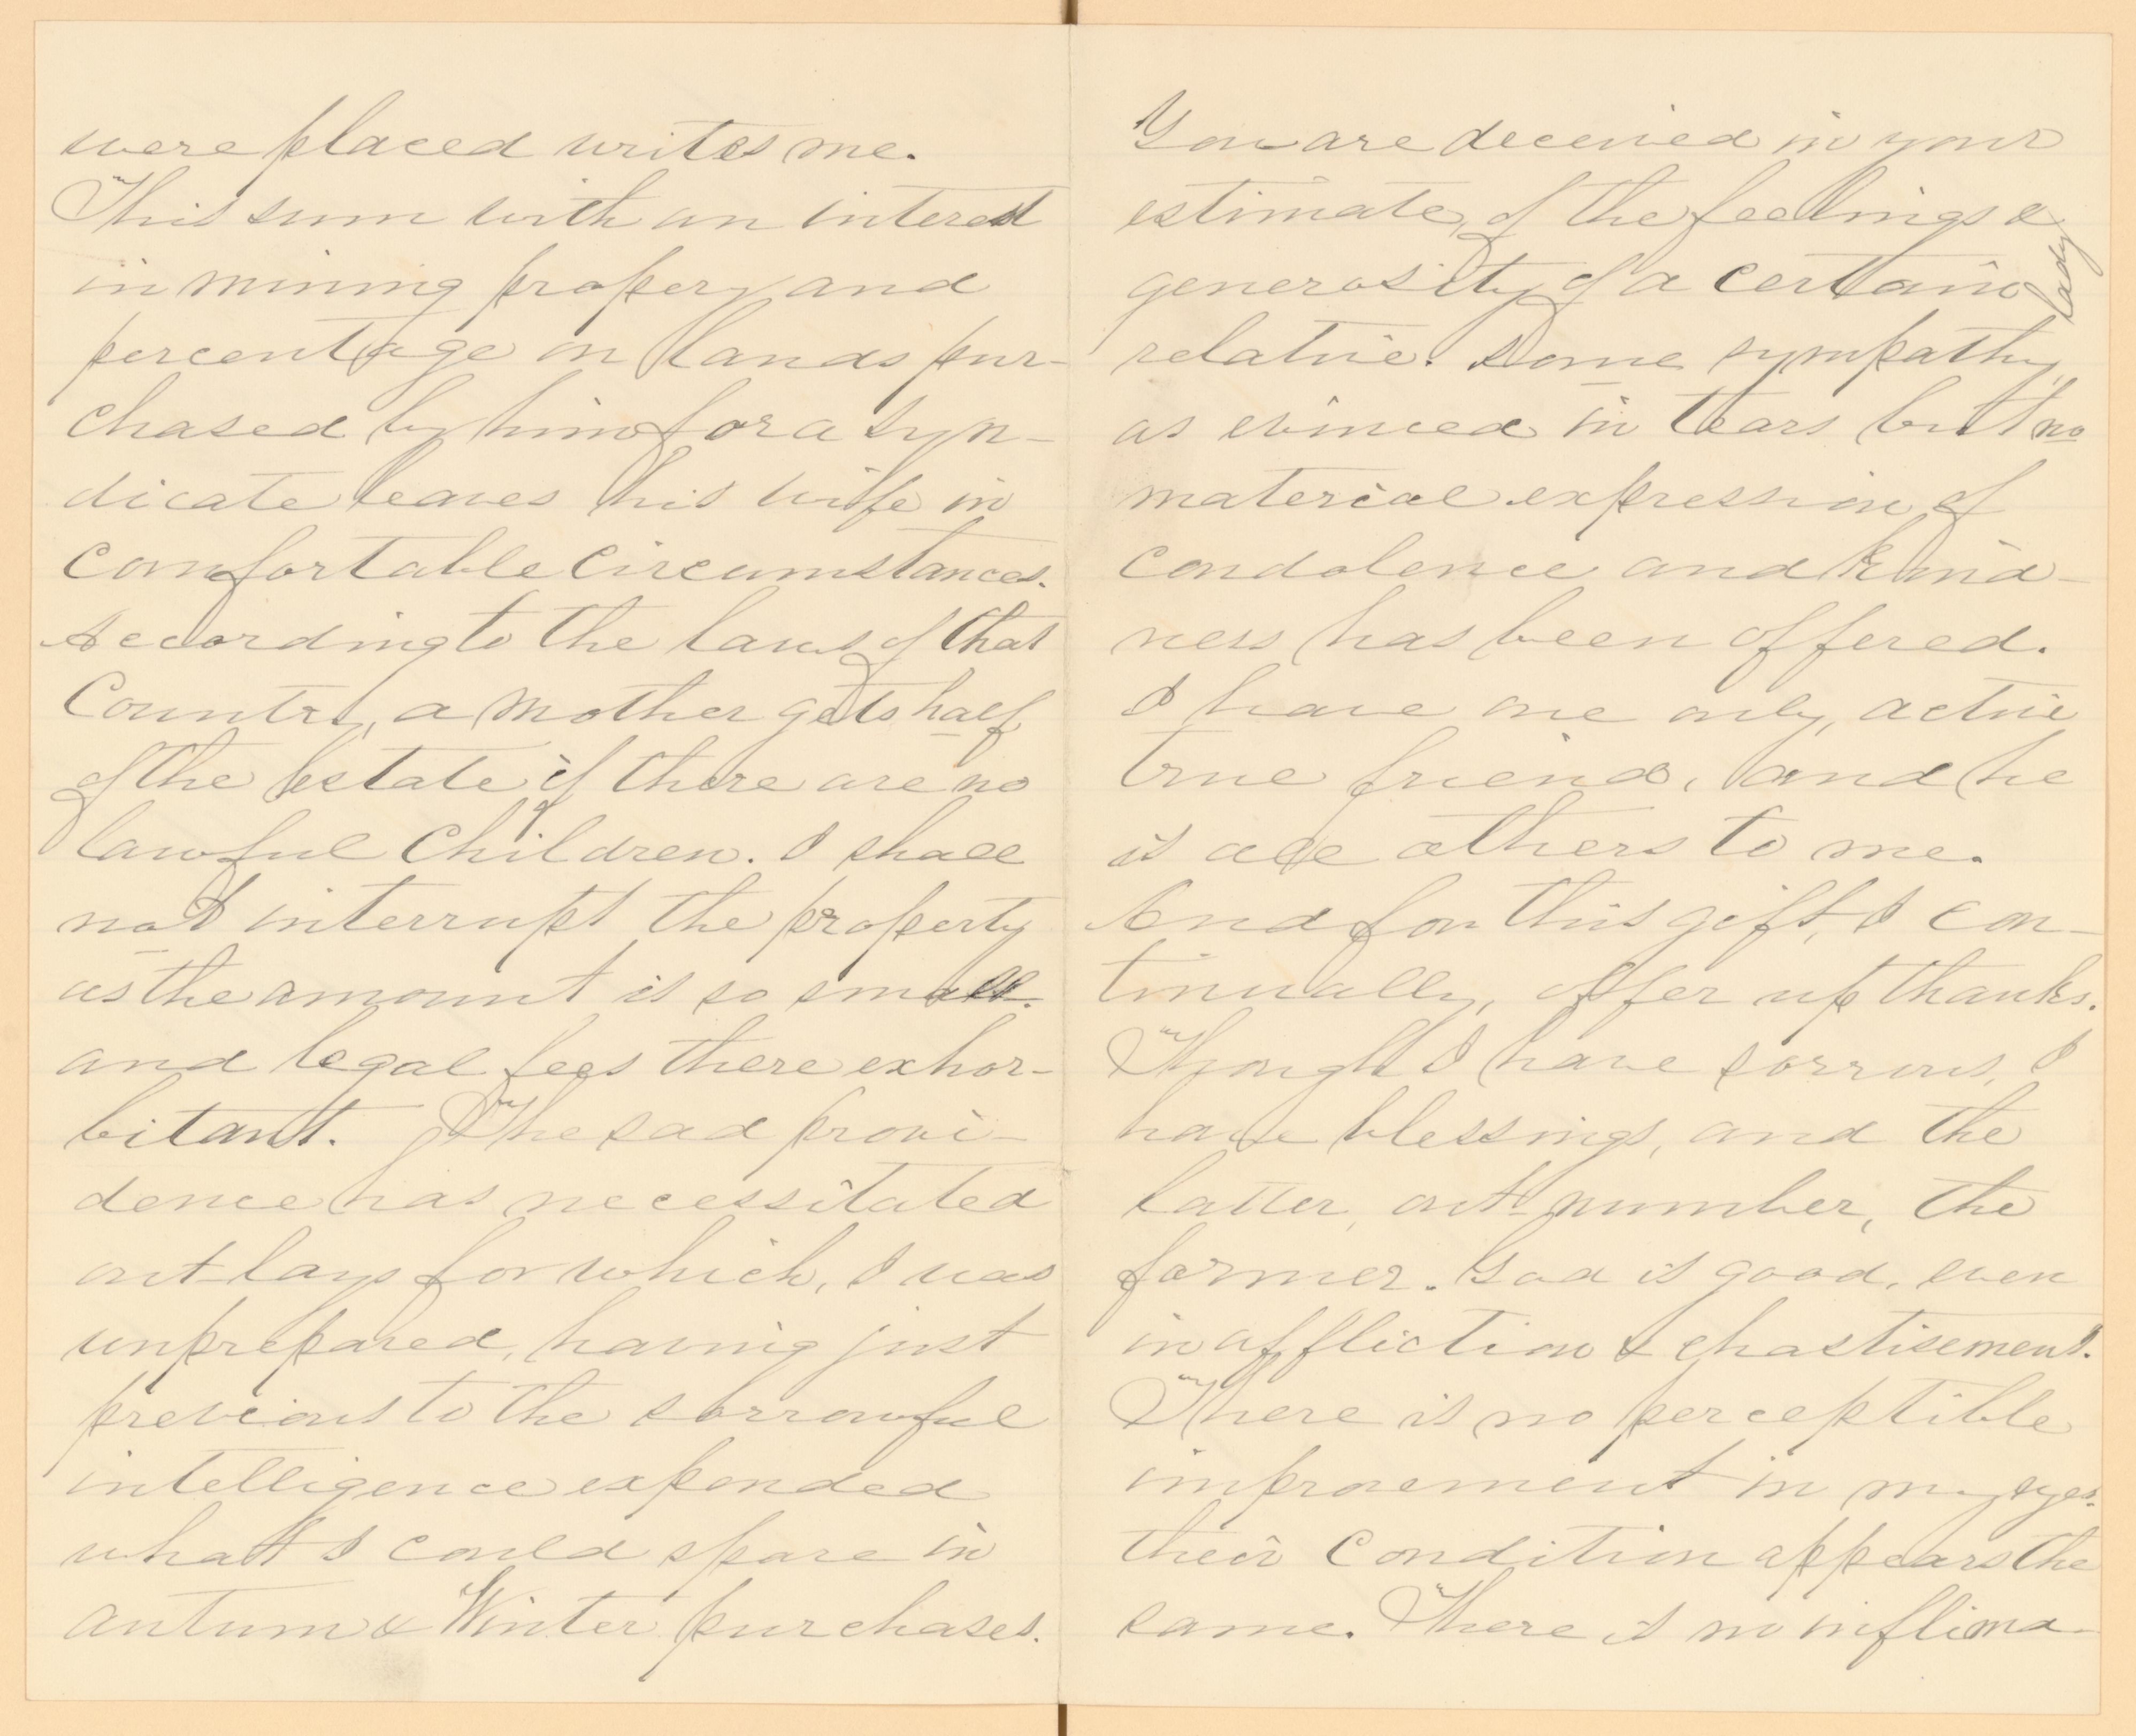 were placed writes me.
This sum with an interest
in mining propery and
percentage on lands pur-
chased by him for a syn-
dicate leaves his wife in
comfortable circumstances.
According to the laws of that
Country, a mother gets half
of the estate if there are no
lawful children. I shall
not interrupt the property
as the amount is so small.
and legal fees there exhor-
bitant. The sad provi-
dence has necessitated
out-lays for which, I was
unprepared, having just
previous to the sorrowful
intelligence expended
what I could spare in
autumn & Winter purchases.
You are deceived in your
estimate, of the feelings &
generosity of a certain lady
relative. Some sympathy,
as evinced in tears but no
material expression of
condolence and kind-
ness has been offered.
I have one only, active
true friend, and he
is all others to me.
And for this gift, I con-
tinually, offer up thanks.
Though I have sorrows, I
have blessings, and the
latter, out-number, the
former. God is good, even
in affliction & chastisement.
There is no perceptible
improvement in my eyes.
their condition appears the
same. There is no inflima-